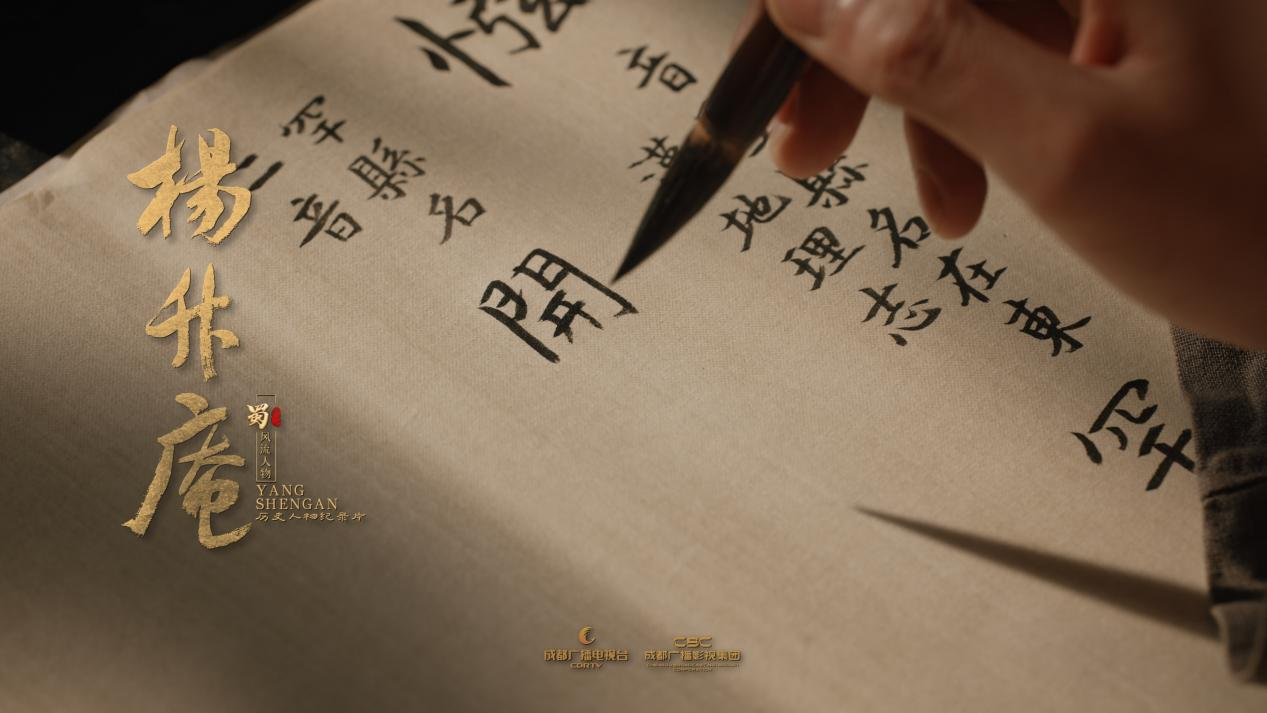 楊升庵
蜀
风流人物
YANG
SHENGAN
历史人物纪录片
音
音縣名
地理志
縣名在東
開
罕
成都广播电视台
CDRTV
CBC
成都广播影视集团